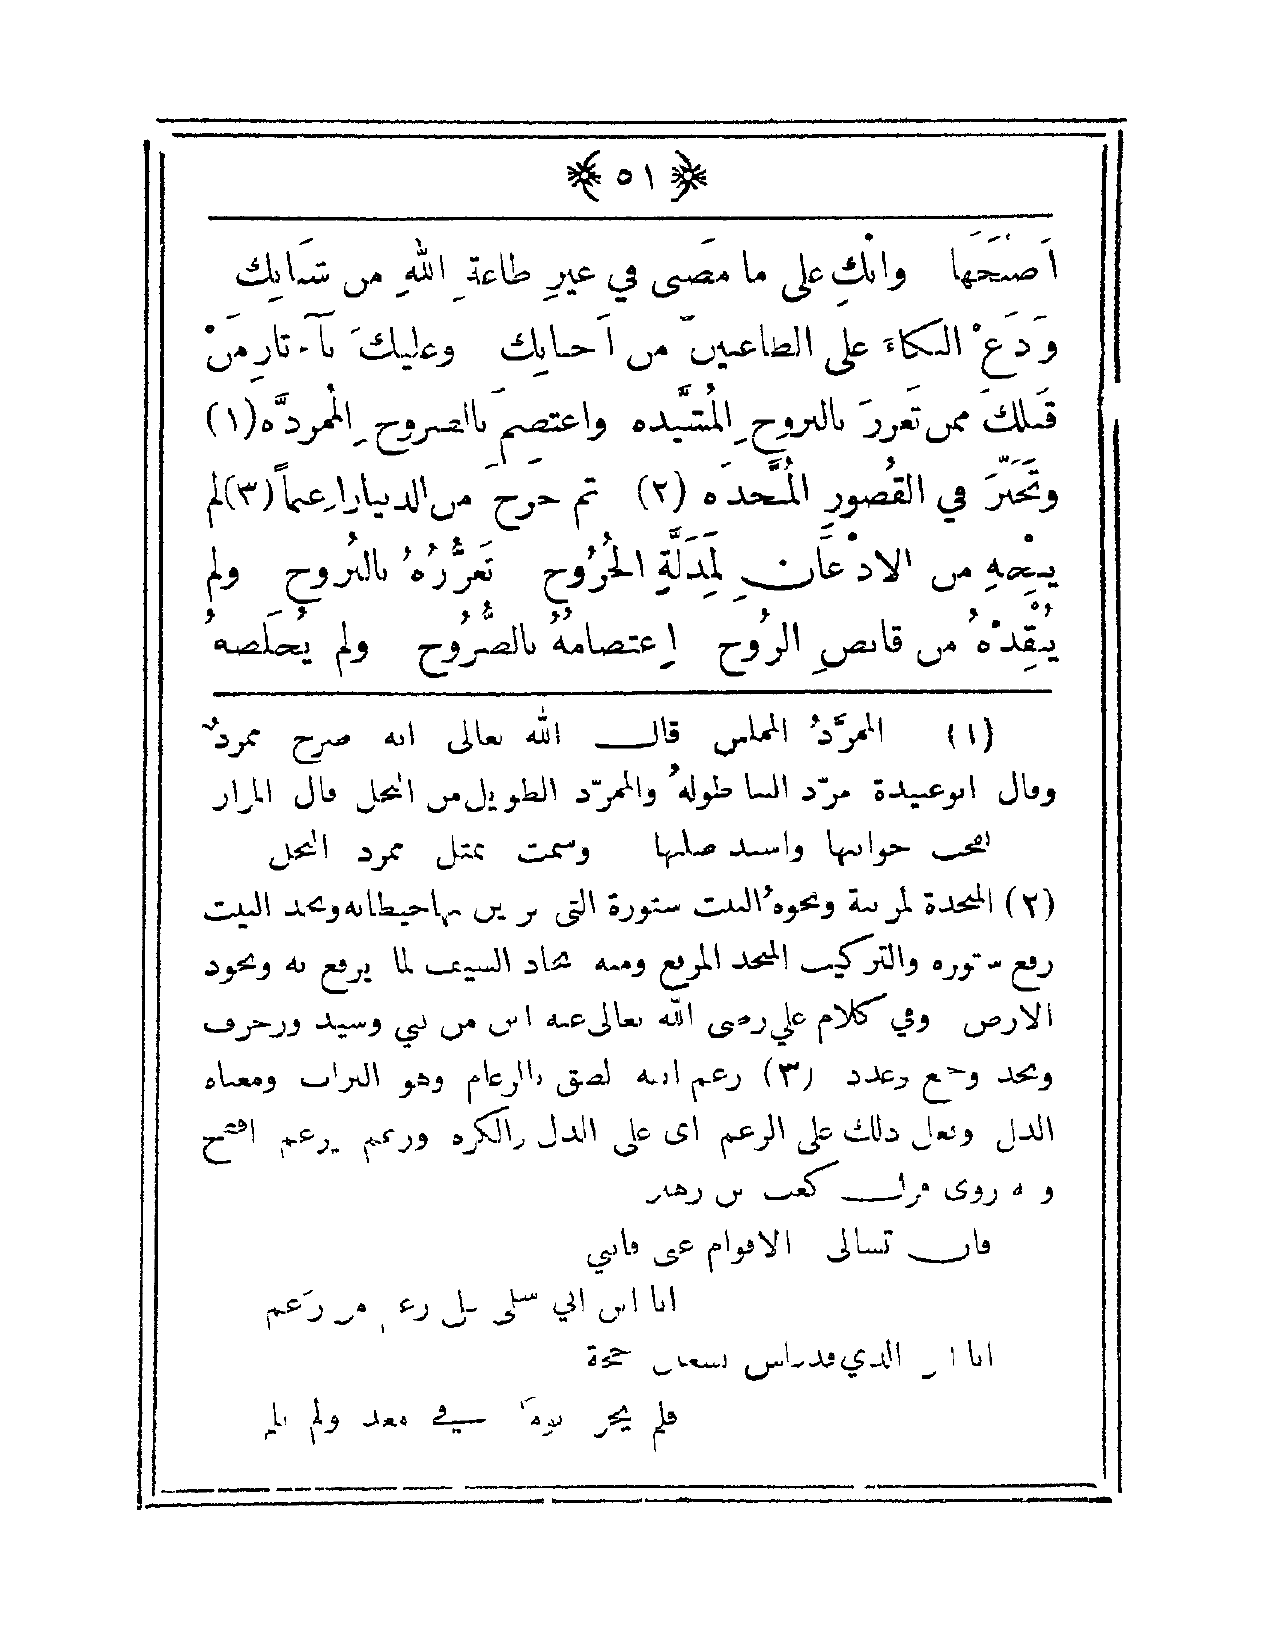 ﴿ ٥١ ﴾
أَصْبَحَها وابْكِ على ما مضى في غيرِ طاعةِ اللهِ من شَبَابِكِ
وَدَعْ البكاءَ على الظاعنينَ من أحبابِكَ وعليكَ بآثارِ مَنْ
قبلكَ ممن تعززَ بالبروجِ المُشَيَّده واعتصمَ بالصروحِ المُمرَّدَه (١)
وتَجَبَّرَ في القُصورِ المُنَجَّدَه (٢) ثم خرج من الدنيا راغماً (٣) لم
ينجِهِ من الاذْعَانِ لِمَذَلَّةِ الخُرُوجِ تَعَزُّزُهُ بالبُروجِ ولم
يُنْقِذْهُ من قابضِ الرُوحِ إعتصامُهُ بالصُّرُوحِ ولم يُخلصهُ
(١) الممرَّدُ المملس قال الله تعالى انه صرح ممردٌ
وقال ابو عبيدة مرّد البنا طولهُ والممرّد الطويل من النخل قال المرار
حوانبها واشتد صلبها ممرد النخل
(٢) المنجدة المزينة ونحوهُ البيت ستورة التي يزين بها حيطانه ونجد البيت
رفع ستوره والتركيب المنجد المرتفع ومنه نجاد السيف لما يرفع به ونجود
الارض وفي كلام علي رضى الله تعالى عنه اين من بنى وشيد وزخرف
ونجد وجمع وعدد (٣) رغم انفه لصق بالرغام وهو التراب ومعناه
الذل وفعل ذلك على الرغم اى على الذل والكره ورغم يرغم افصح
وروى كعب بن زهير
فان تسألى الاقوام عنى فانني
انا ابن ابي سلمى على رغم من رغم
انا ابن الذي قد عاش تسعين حجة
فلم يخز يوماً في معد ولم يلم